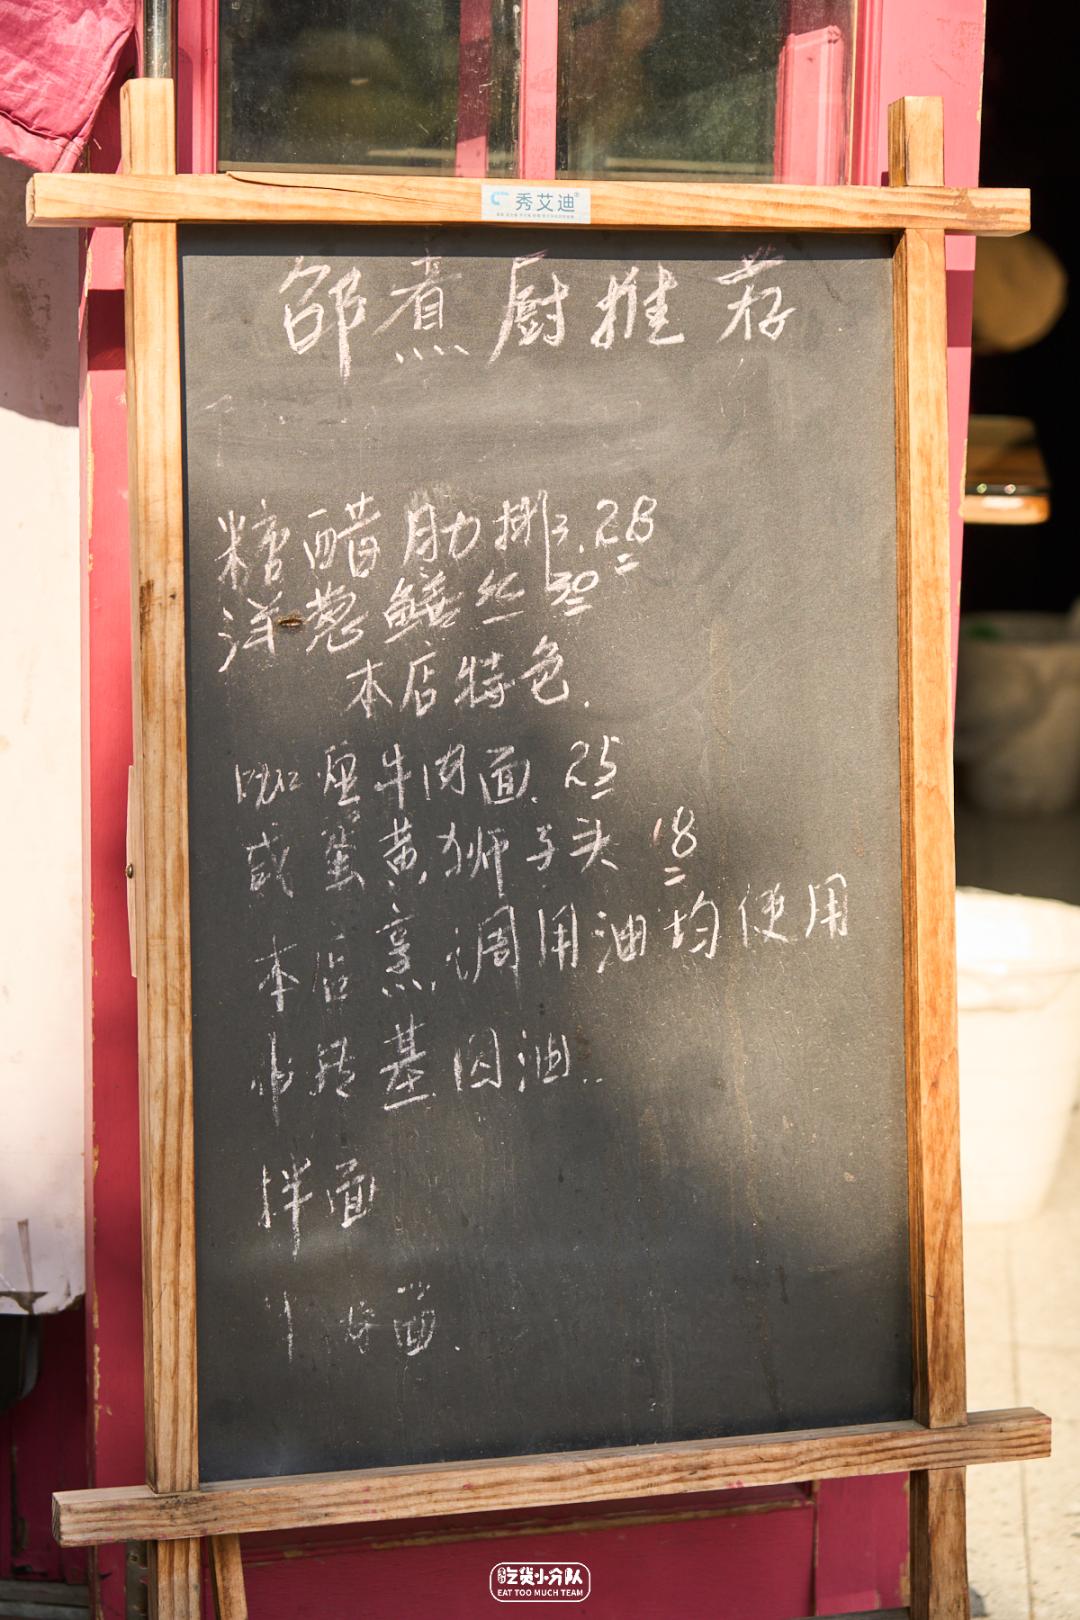 秀艾迪
邵煮厨推荐
糖醋肋排.28
洋葱鳝丝 30
本店特色.
咖喱牛肉面. 25
咸蛋黄狮子头 18
本店烹调用油均使用
非转基因油..
拌面
面.
吃货小分队
EAT TOO MUCH TEAM